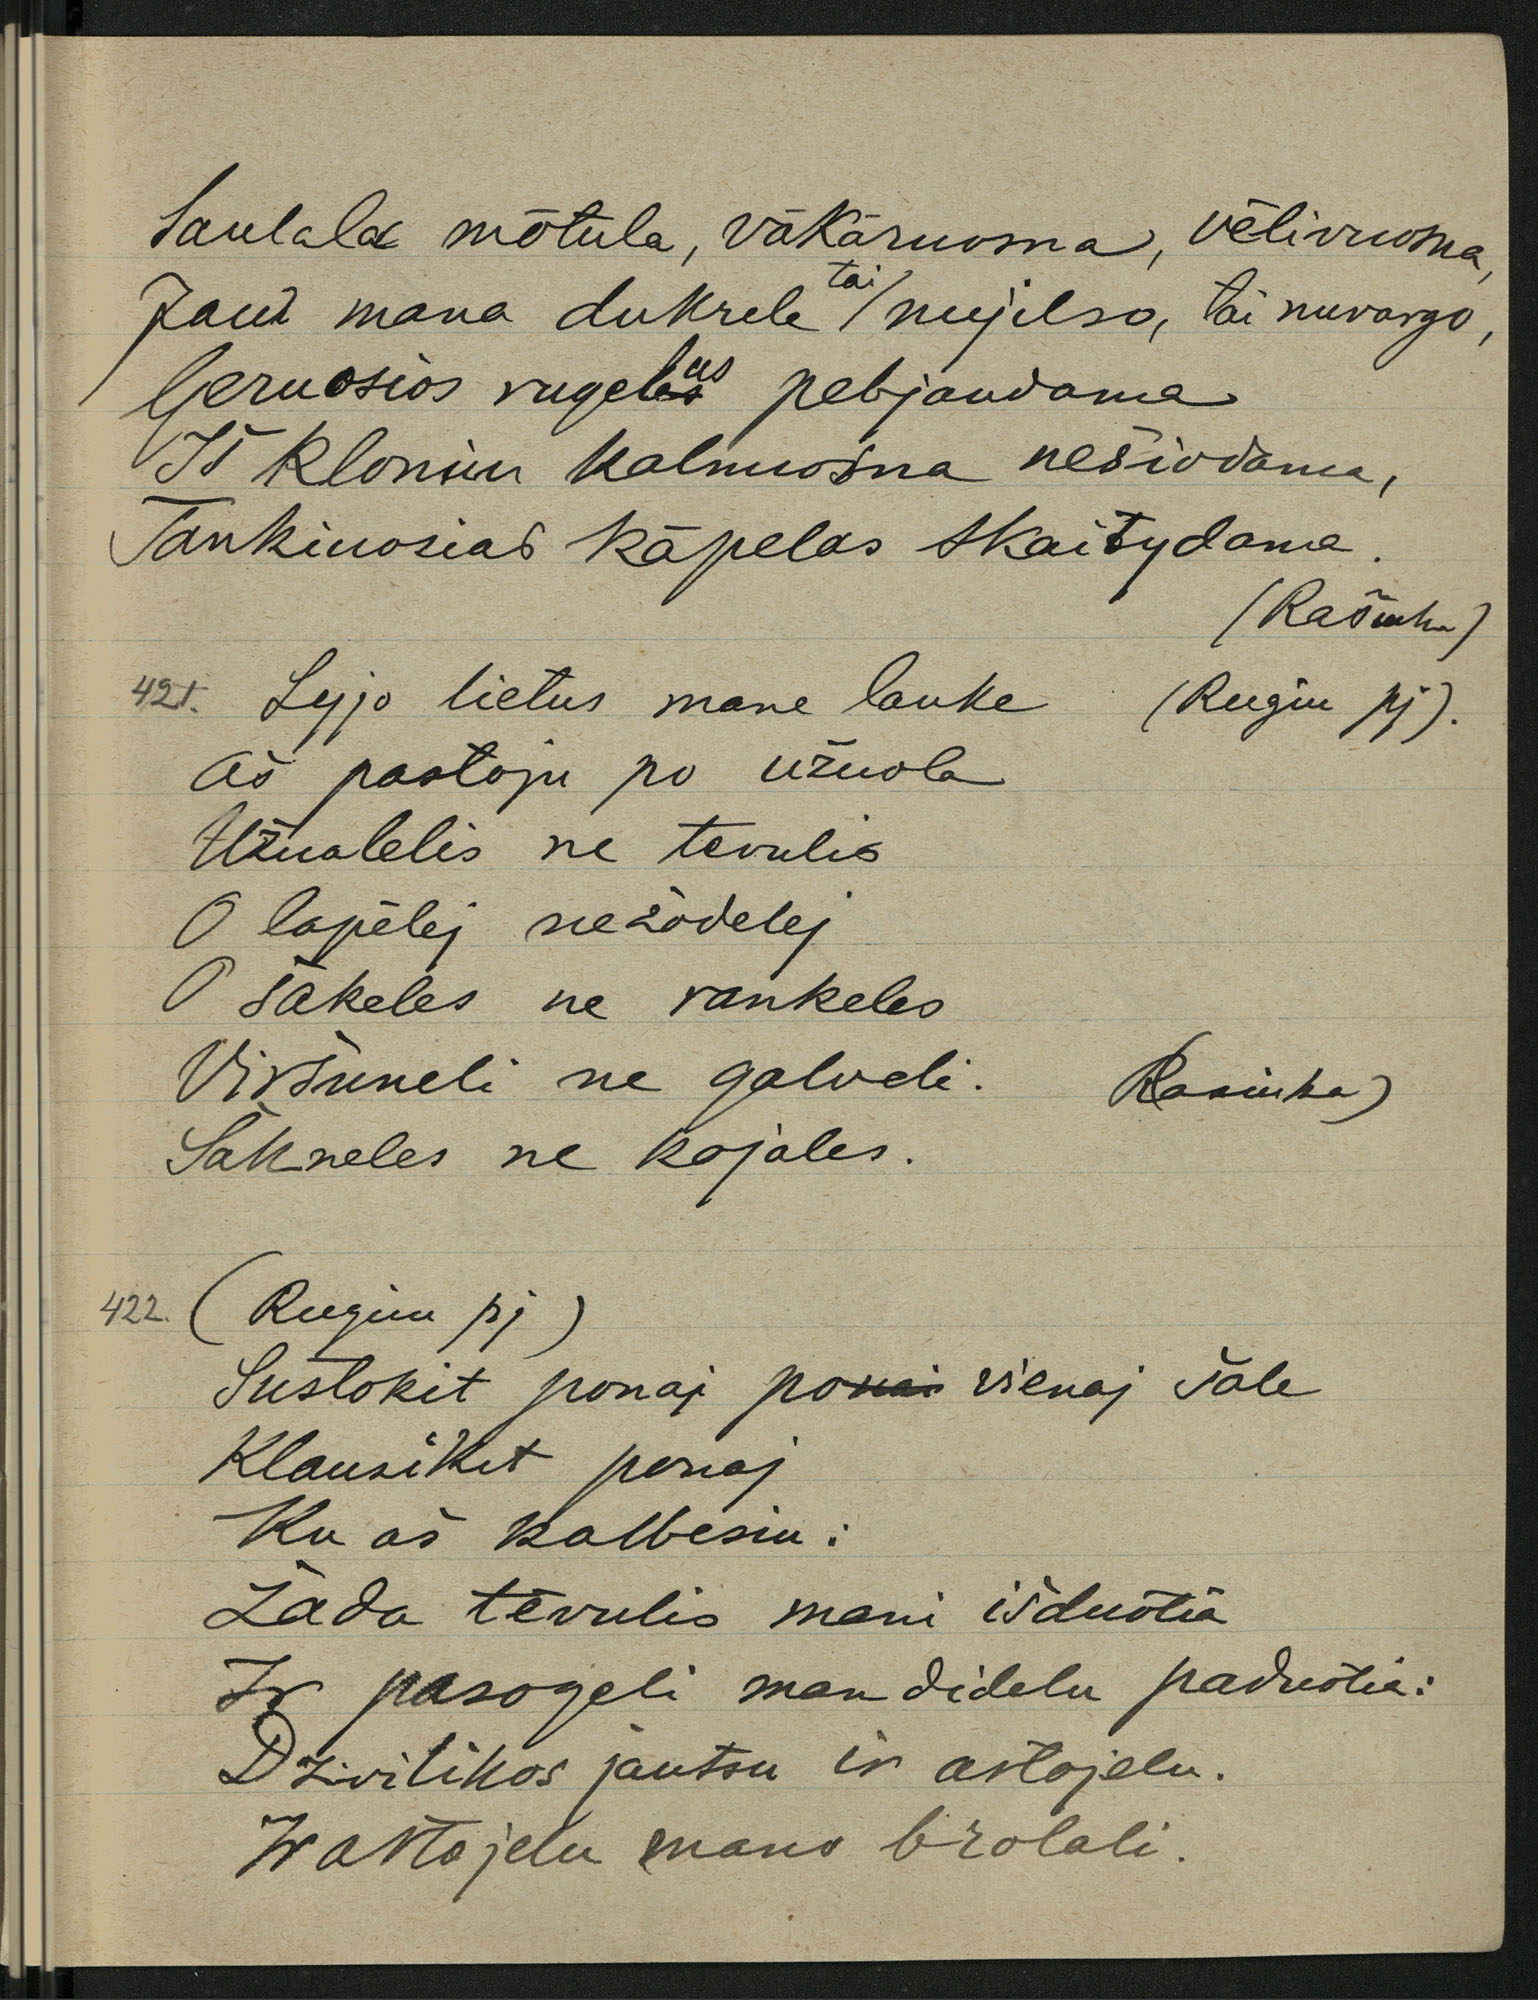 Saulala mōtula, vākāruosna, vēlivuosna,
Jauu mana dukrele tai nujilso, tai nuvargo,
Geruosios rugeles pebjaudama
Iš kloniu kalnuosna nešiodama,
Tankiuosias kāpelas skaitydama.
(Rašinka)
421. Lyjo lietus mane lauke (Rugiu pj).
Aš pastoju po užuola
Užualelis ne tevulis
O lapēlej nežodelej
O šākeles ne rankeles
Viršuneli ne galveli. (Rasinka)
Šākneles ne kojales.
422. (Rugiu pj)
Sustokit ponaj ponai vienaj šale
Klausikit ponaj
Ku aš kalbesiu:
Žāda tēvulis mani išduōtia
Ir pasogeli man didelu paduōtia:
Dzivilikos jautsu ir astojelu.
Ir astojelu mano brolali.